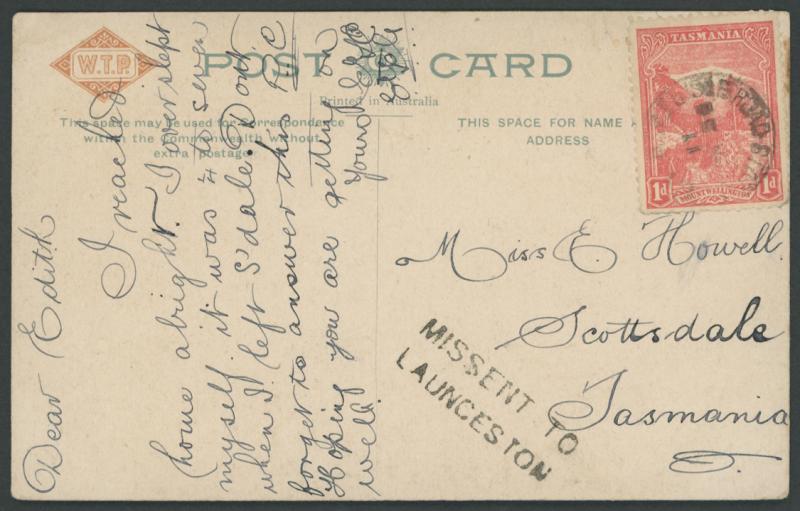 W.T.P.
POST CARD
Printed in Australia
This space may be used for Correspondence
within the Commonwealth without
extra postage.
THIS SPACE FOR NAME
ADDRESS
TASMANIA
1d 1d
MOUNT WELLINGTON
Dear Edith
I reach'd
home alright. I overslept
myself, it was 4 to seven
when I left S'dale. Dont
forget to answer this P.C
Hoping you are getting on
well.
Miss E. Howell
Scottsdale
Tasmania
MISSENT TO
LAUNCESTON